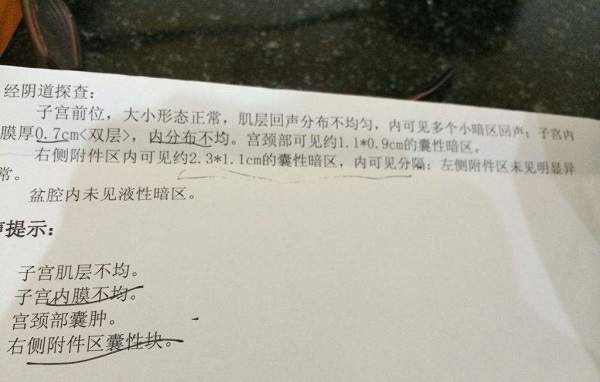 经阴道探查：
子宫前位，大小形态正常，肌层回声分布不均匀，内可见多个小暗区回声；子宫内
膜厚0.7cm<双层>，内分布不均。宫颈部可见约1.1*0.9cm的囊性暗区。
右侧附件区内可见约2.3*1.1cm的囊性暗区，内可见分隔；左侧附件区未见明显异
常。
盆腔内未见液性暗区。
声提示：
子宫肌层不均。
子宫内膜不均。
宫颈部囊肿。
右侧附件区囊性块。